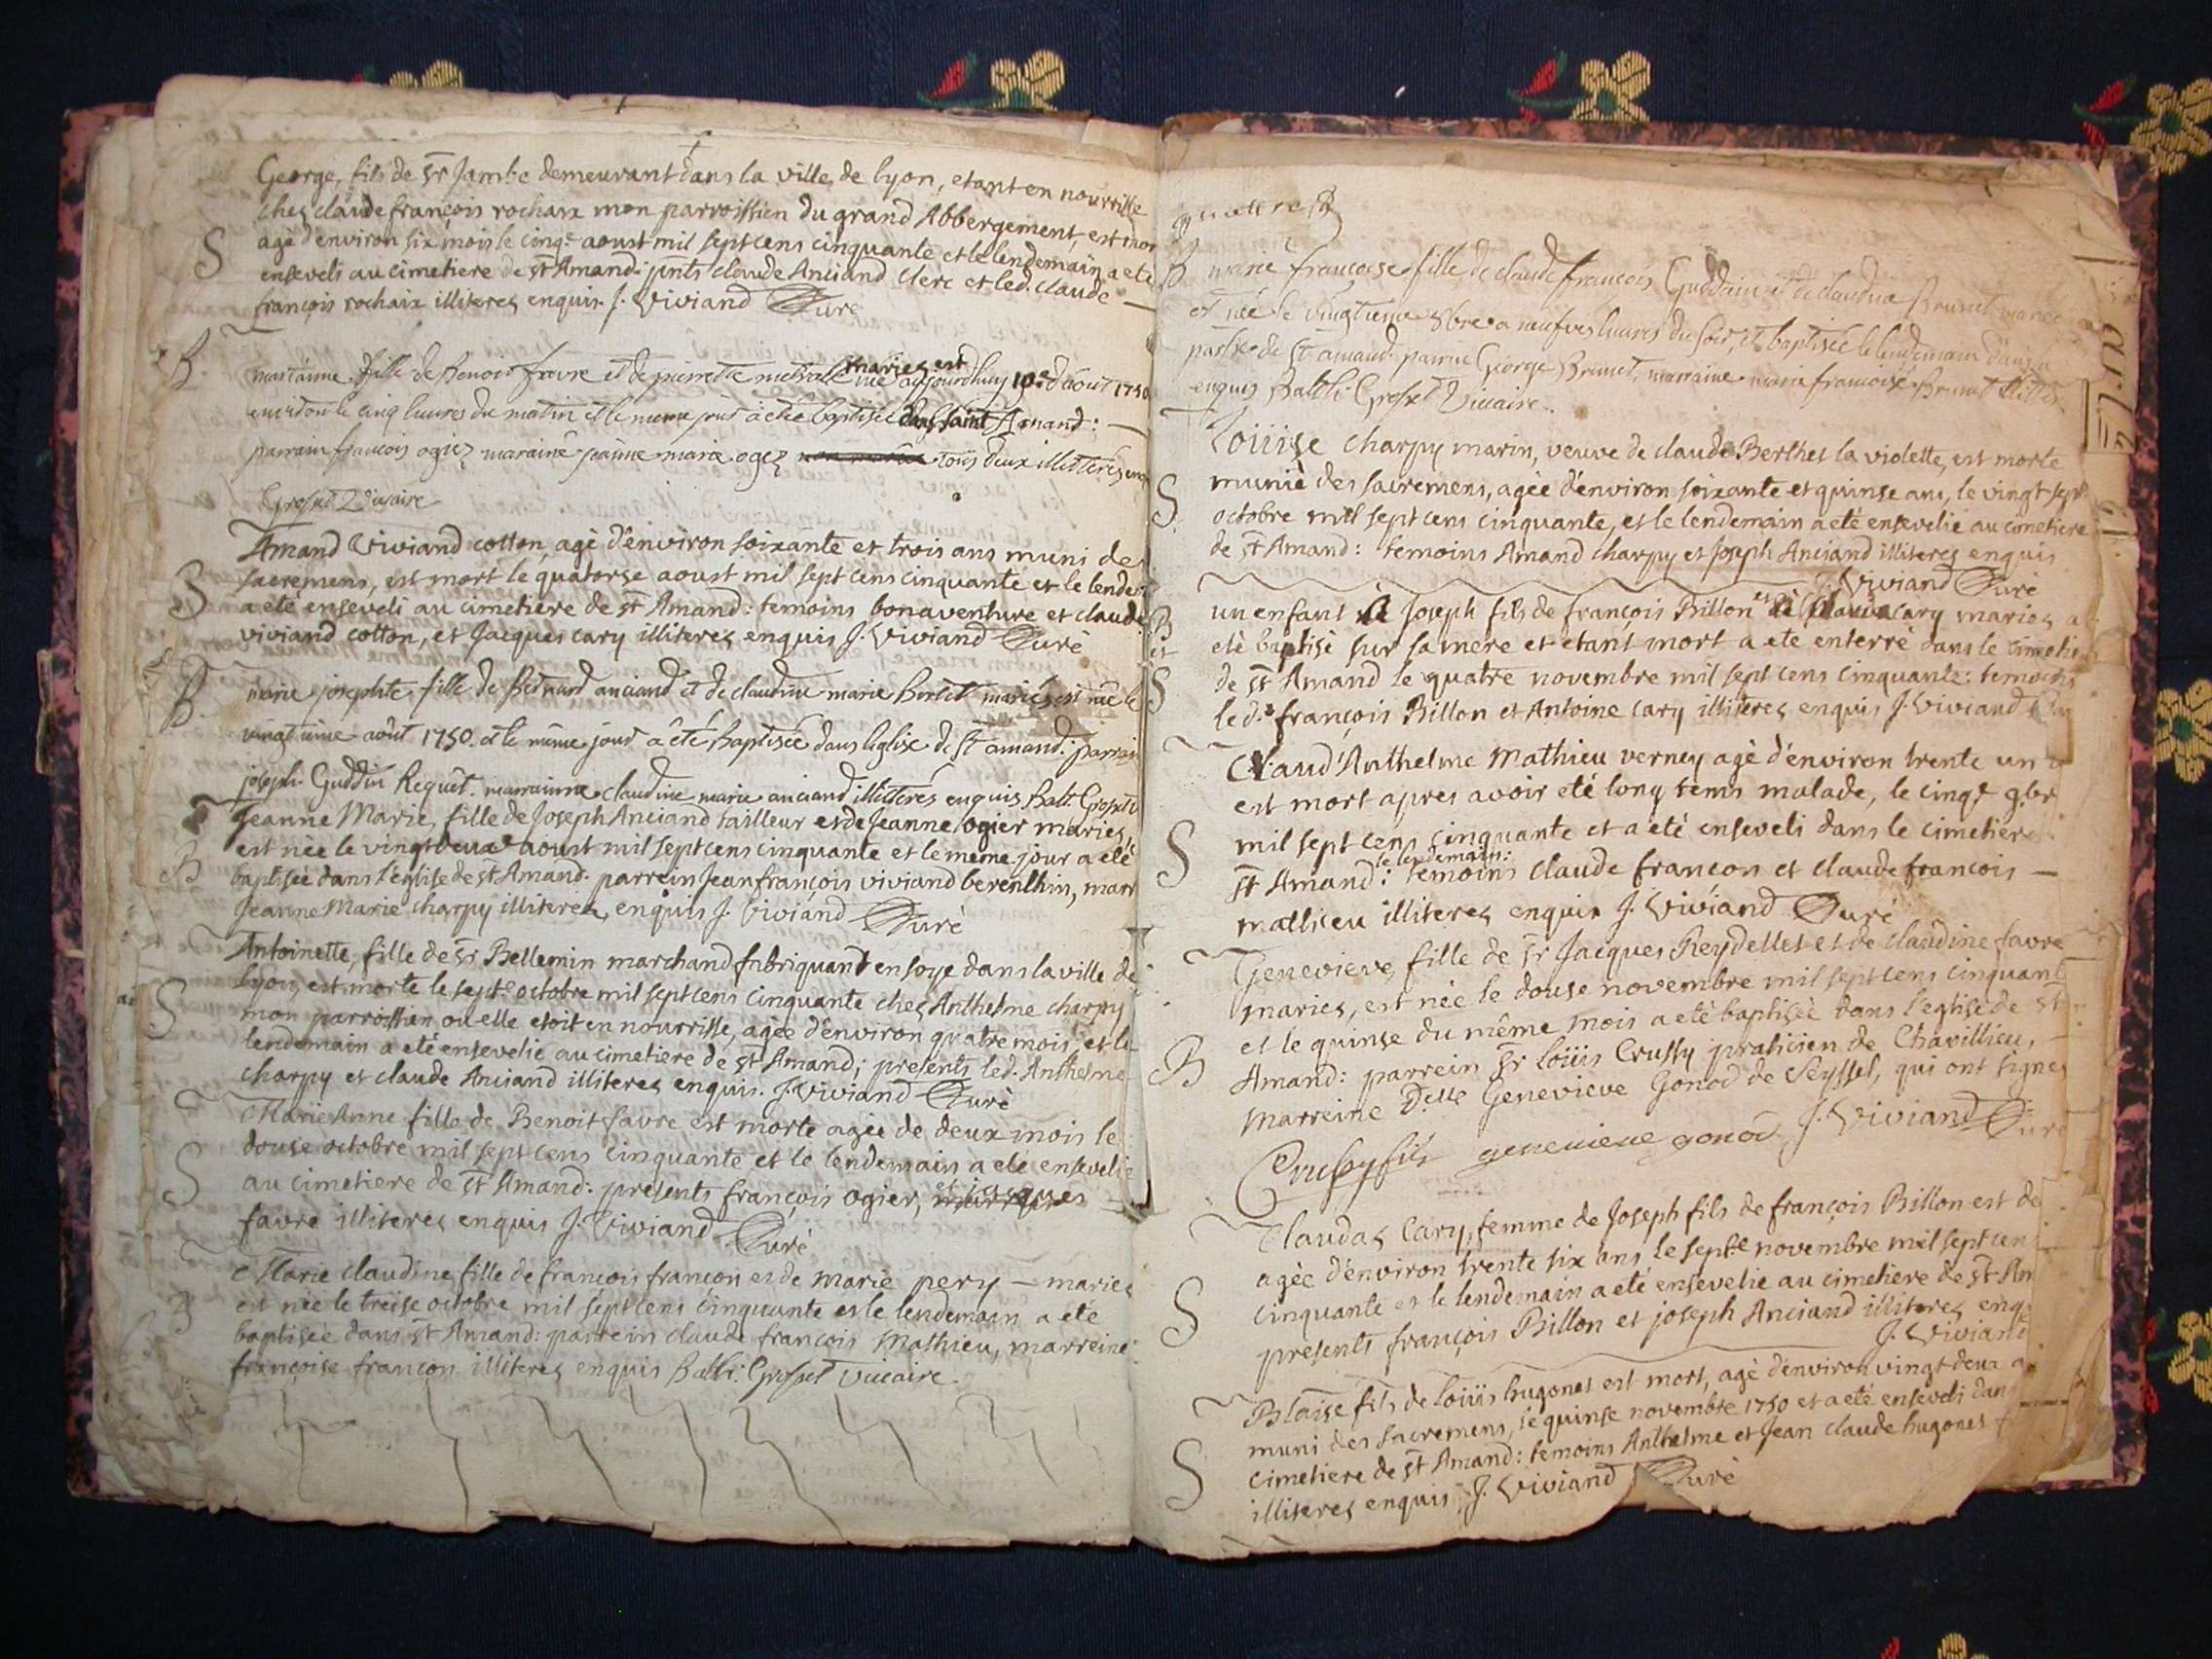 George, fils de Sr Jambe demeurant dans la ville de lyon, etant en nourrisse
chez claude françois rochaix mon parroissien du grand Abbergement, est mor
S agé d'environ six mois le cinqe aoust mil sept cens cinquante et le lendemain a eté
enseveli au cimetiere de st Amand: pnts claude Anciand clerc et led. claude —
françois rochaix illiterez enquis. J. Viviand Curé
B. mariанne fille de Benoit favre et de pierrette mariez est née aujourdhuy 10e d'aout 1750
environ le cinq heures du matin et le meme jour a été baptisée dans saint Amand: —
parrain françois ogiez maraine jeanne marie ogez tous deux illitterés enq
Grosset Vicaire
Amand Viviand cotton, agé d'environ soixante et trois ans muni de
S sacremens, est mort le quatorse aoust mil sept cens cinquante et le lendem
a eté enseveli au cimetiere de st Amand: temoins bonaventure et claude
viviand cotton, et Jacques cary illiterez enquis J. Viviand Curé
B. marie josephte fille de Bernard anciand et de claudine marie Bertet mariés est née le
vingtieme août 1750. et le même jour a été Baptisée dans leglise de St amand: parrai
joseph Guddin Requet. marrainne claudine marie anciand illitterés enquis Balt. Grosset
Jeanne Marie, fille de Joseph Anciand tailleur et de Jeanne ogier mariés,
est née le vingt deux aoust mil sept cens cinquante et le meme jour a eté
B baptisée dans l'église de st Amand. parrein Jean françois viviand berenthin, marr
Jeanne Marie charpy illiterez, enquis J. Viviand Curé
Antoinette, fille de Sr Bellemin marchand fabriquant en soye dans la ville de
lyon, est morte le septe octobre mil sept cens cinquante chez Anthelme charpy
S mon parroissien ou elle etoit en nourrisse, agée d'environ quatre mois, et le
lendemain a eté ensevelie au cimetiere de st Amand; presents led. Anthelme
charpy et claude Anciand illiterez enquis. J. Viviand Curé
Marie Anne fille de Benoit favre est morte agée de deux mois le
douse octobre mil sept cens cinquante et le lendemain a eté ensevelie
S au cimetiere de st Amand: presents françois ogier, et jacques
favre illiterez enquis J. Viviand Curé
Marie claudine fille de françois françon et de marie pery — mariez
B est née le treise octobre mil sept cens cinquante et le lendemain a eté
baptisée dans st Amand: parrein claude françois Mathieu, marreine
françoise françon illiterez enquis Balth. Grosset Vicaire.
B marie françoise fille de claude françois Guddin et de claudua Brunet mariés
est née le vingtieme 8bre a neuf heures du soir, et baptisée le lendemain dans la
parsse de St amand. parrin George Brunet, marraine marie françoise Brunet
enquis Balth: Grosset Vicaire.
Loüise charpy marin, veuve de claude Berthet la violette, est morte
S munie des sacremens, agée d'environ soixante et quinse ans, le vingt sept
octobre mil sept cens cinquante, et le lendemain a eté ensevelie au cimetiere
de st Amand: temoins Amand charpy et Joseph Anciand illiterez enquis
J. Viviand Curé
B un enfant de Joseph fils de françois Billon et de clauda cary mariez a
et eté baptisé sur sa mere et etant mort a eté enterré dans le cimetie
S de st Amand le quatre novembre mil sept cens cinquante: temoins
led. françois Billon et Antoine cary illiterez enquis J. Viviand Cur
Claud'Anthelme Mathieu verney agé d'environ trente un
est mort apres avoir eté long tems malade, le cinqe 9br
S mil sept cens cinquante et a eté enseveli dans le cimetiere
le lendemain:
st Amand: temoins claude françon et claude françois —
mathieu illiterez enquis J. Viviand Curé
Genevieve, fille de Sr Jacques Reydellet et de claudine favre
mariez, est née le douse novembre mil sept cens cinquant
et le quinse du même mois a eté baptisée dans l'eglise de st
B Amand: parrein Sr Loüis Crussy praticien de Chavillieu,
marreine Delle Genevieve Gonod de Seyssel, qui ont signez
Crussy fils genevieve gonod J. Viviand Curé
Claudaz Cary, femme de Joseph fils de françois Billon est de
agée d'environ trente six ans le septe novembre mil sept cen
S cinquante et le lendemain a eté ensevelie au cimetiere de st Am
presents françois Billon et joseph Anciand illiterez enq
J. Viviand
Blaise fils de loüis hugonet est mort, agé d'environ vingt deux a
muni des sacremens, le quinse novembre 1750 et a eté enseveli dan
S cimetiere de st Amand: temoins Anthelme et Jean claude hugonet
illiterez enquis J. Viviand Curé